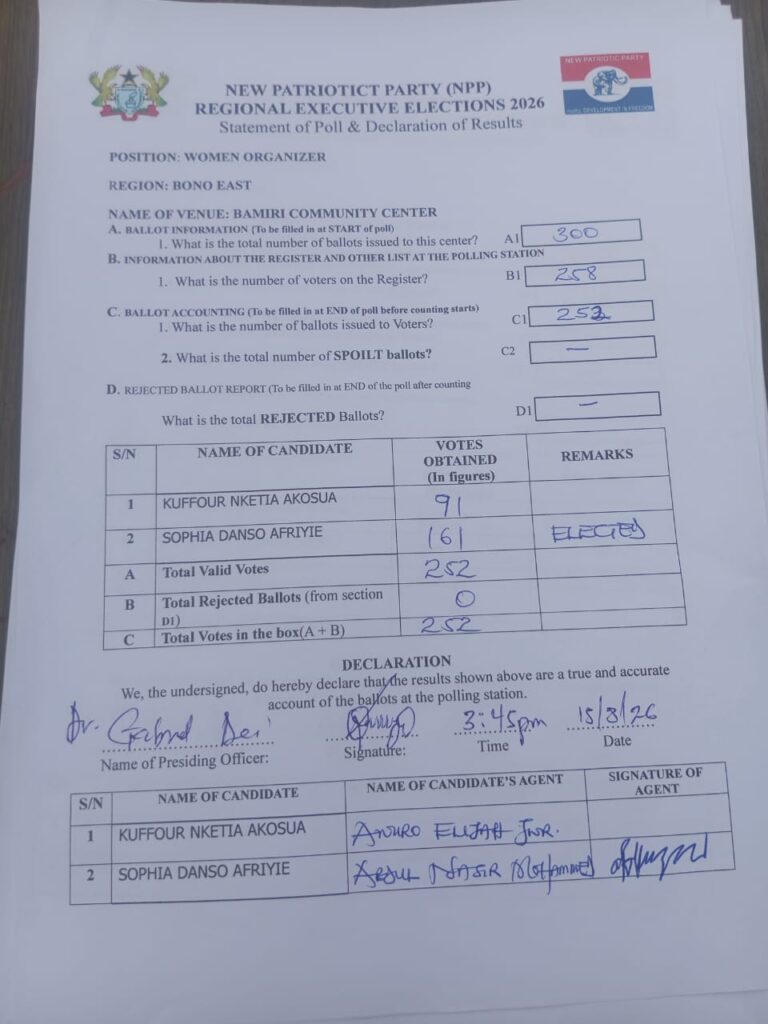 NEW PATRIOTICT PARTY (NPP)
REGIONAL EXECUTIVE ELECTIONS 2026
Statement of Poll & Declaration of Results
NEW PATRIOTIC PARTY
DEVELOPMENT IN FREEDOM
POSITION: WOMEN ORGANIZER
REGION: BONO EAST
NAME OF VENUE: BAMIRI COMMUNITY CENTER
A. BALLOT INFORMATION (To be filled in at START of poll)
1. What is the total number of ballots issued to this center? A1 300
B. INFORMATION ABOUT THE REGISTER AND OTHER LIST AT THE POLLING STATION
1. What is the number of voters on the Register? B1 258
C. BALLOT ACCOUNTING (To be filled in at END of poll before counting starts)
1. What is the number of ballots issued to Voters? C1 252
2. What is the total number of SPOILT ballots? C2 —
D. REJECTED BALLOT REPORT (To be filled in at END of the poll after counting
What is the total REJECTED Ballots? D1 —
S/N NAME OF CANDIDATE VOTES OBTAINED (In figures) REMARKS
1 KUFFOUR NKETIA AKOSUA 91
2 SOPHIA DANSO AFRIYIE 161 ELECTED
A Total Valid Votes 252
B Total Rejected Ballots (from section D1) 0
C Total Votes in the box(A + B) 252
DECLARATION
We, the undersigned, do hereby declare that the results shown above are a true and accurate
account of the ballots at the polling station.
Dr. Gabriel 3:45pm 15/3/26
Name of Presiding Officer: Signature: Time Date
S/N NAME OF CANDIDATE NAME OF CANDIDATE'S AGENT SIGNATURE OF AGENT
1 KUFFOUR NKETIA AKOSUA ANURO ELIJAH JNR.
2 SOPHIA DANSO AFRIYIE ABDUL NASIR MOHAMMED